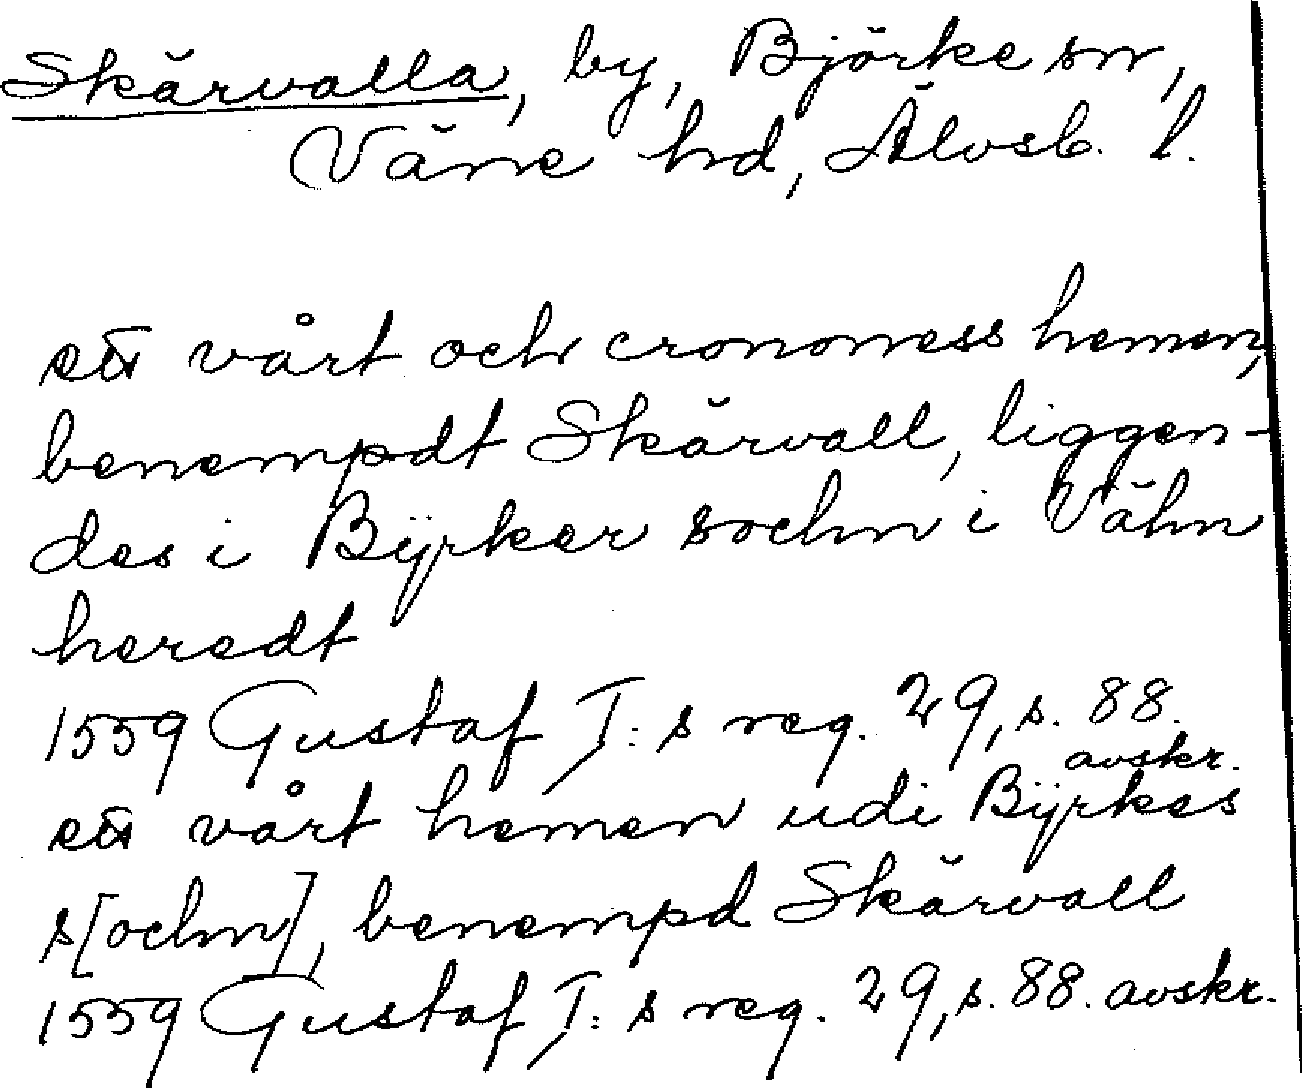 Skärvalla, by, Björke sn,
Väne hd, Älvsb. l.
ett vårt och crononess hemen,
benempdt Skärvall, liggen-
des i Bÿrker sochn i Vähn
heredt
1559 Gustaf I:s reg. 29, s. 88.
avskr.
ett vårt hemen udi Bÿrkes
s[ochn], benempd Skärvall
1559 Gustaf I:s reg. 29, s. 88. avskr.